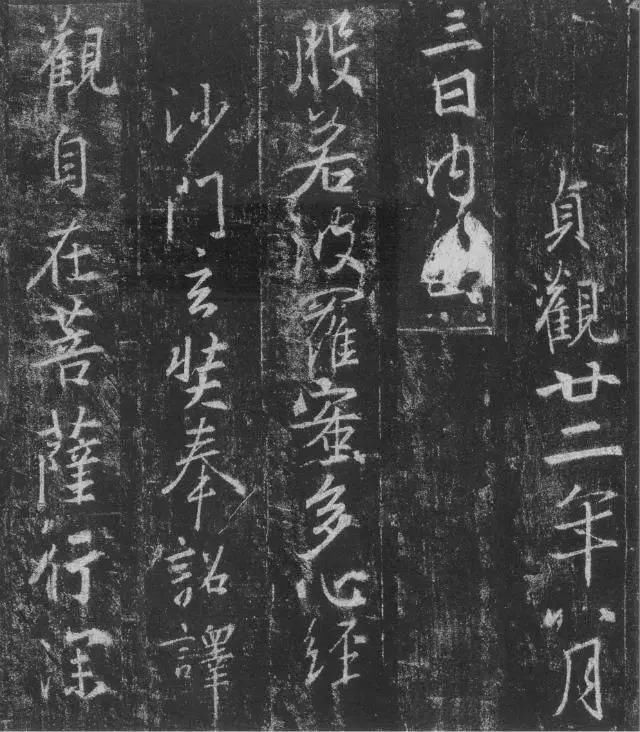 貞觀廿二年八月
三日内
般若波羅蜜多心经
沙門玄奘奉詔譯
觀自在菩薩行深